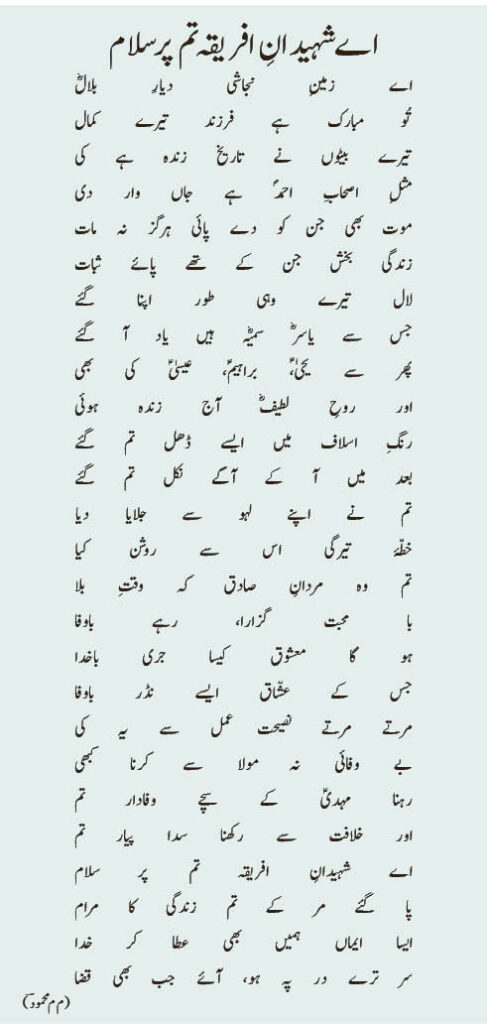 اے شہیدانِ افریقہ تم پر سلام
اے زمینِ نجاشی دیارِ بلالؓ
تُو مبارک ہے فرزند تیرے کمال
تیرے بیٹوں نے تاریخ زندہ ہے کی
مثلِ اصحابِ احمدؐ ہے جاں وار دی
موت بھی جن کو دے پائی ہرگز نہ مات
زندگی بخش جن کے تھے پائے ثبات
لال تیرے وہی طور اپنا گئے
جس سے یاسرؓ سمیّہؓ ہیں یاد آ گئے
پھر سے یحییٰؑ، براہیمؑ، عیسیٰؑ کی بھی
اور روحِ لطیفؓ آج زندہ ہوئی
رنگِ اسلاف میں ایسے ڈھل تم گئے
بعد میں آ کے آگے نکل تم گئے
تم نے اپنے لہو سے جلایا دیا
خطّۂ تیرگی اس سے روشن کیا
تم وہ مردانِ صادق کہ وقتِ بلا
با محبت گزارا، رہے باوفا
ہو گا معشوق کیسا جری باخدا
جس کے عشّاق ایسے نڈر باوفا
مرتے مرتے نصیحت عمل سے یہ کی
بے وفائی نہ مولا سے کرنا کبھی
رہنا مہدیؑ کے سچے وفادار تم
اور خلافت سے رکھنا سدا پیار تم
اے شہیدانِ افریقہ تم پر سلام
پا گئے مر کے تم زندگی کا مرام
ایسا ایماں ہمیں بھی عطا کر خدا
سر ترے در پہ ہو، آئے جب بھی قضا
(م م محمودؔ)